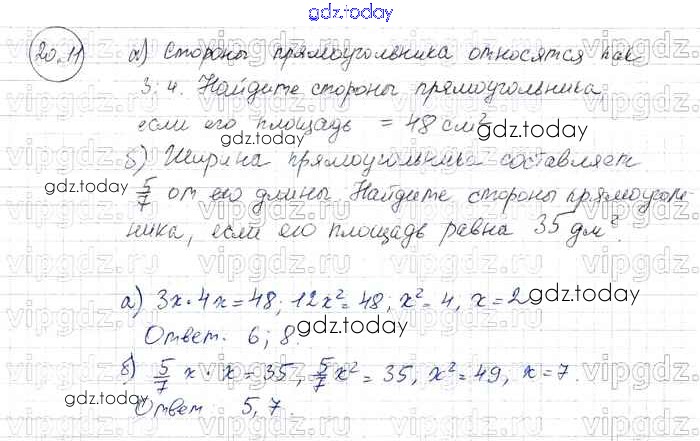 gdz.today
20.11 а) Стороны прямоугольника относятся как
3:4. Найдите стороны прямоугольника,
если его площадь = 48 см²
gdz.today
б) Ширина прямоугольника составляет
gdz.today
5/7 от его длины. Найдите стороны прямоуголь
ника, если его площадь равна 35 дм².
gdz.today
а) 3x·4x=48; 12x²=48; x²=4, x=2
gdz.today
gdz.today
Ответ. 6; 8.
б) 5/7 x · x = 35, 5/7 x² = 35, x²=49, x=7.
gdz.today
Ответ 5, 7.
gdz.today
vipgdz.ru